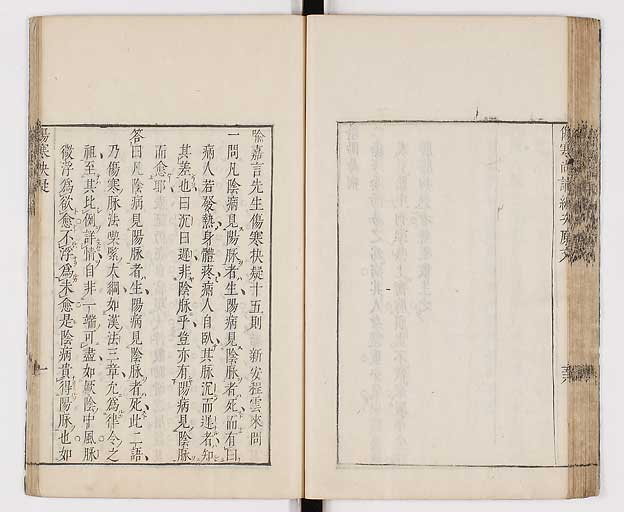 喻嘉言先生傷寒抉疑十五則　新安程雲來問
一問凡陰病見陽脉者生陽病見陰脉者死而有曰
病人若發熱身體疼病人自臥其脉沉而遲者知
其差也曰沉曰遲非陰脉乎豈亦有陽病見陰脉
而愈耶
答曰凡陰病見陽脉者生陽病見陰脉者死此二語
乃傷寒脉法喫緊大綱如漢法三章允爲律令之
祖至其比例詳情自非一端可盡如厥陰中風脉
微浮爲欲愈不浮爲未愈是陰病貴得陽脉也如
傷寒抉疑
一